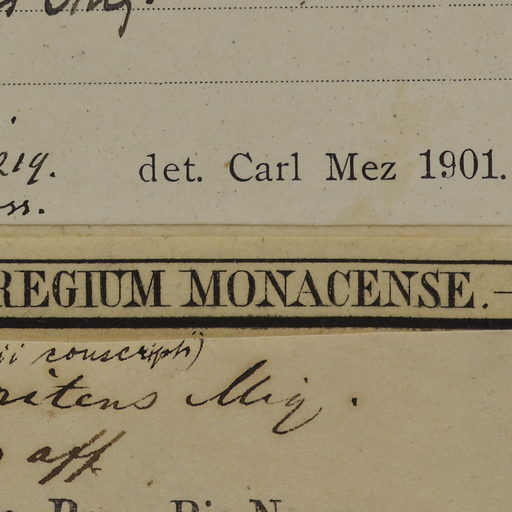 det. Carl Mez 1901.
REGIUM MONACENSE. –
ii conscripti)
ritens Miq.
aff